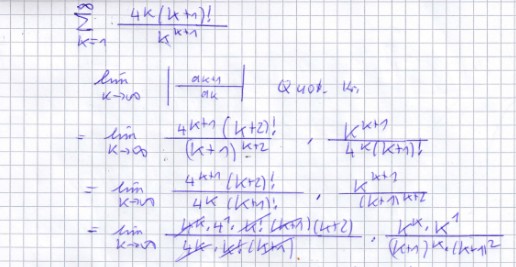 ∞ Σ k=1 4^k (k+1)! / k^(k+1)
lim k→∞ | a_k+1 / a_k | Quot. Kr.
= lim k→∞ 4^(k+1) (k+2)! / (k+1)^(k+2) · k^(k+1) / 4^k (k+1)!
= lim k→∞ 4^(k+1) (k+2)! / 4^k (k+1)! · k^(k+1) / (k+1)^(k+2)
= lim k→∞ 4^k · 4^1 · k! (k+1) (k+2) / 4^k · k! (k+1) · k^k · k^1 / (k+1)^k · (k+1)^2